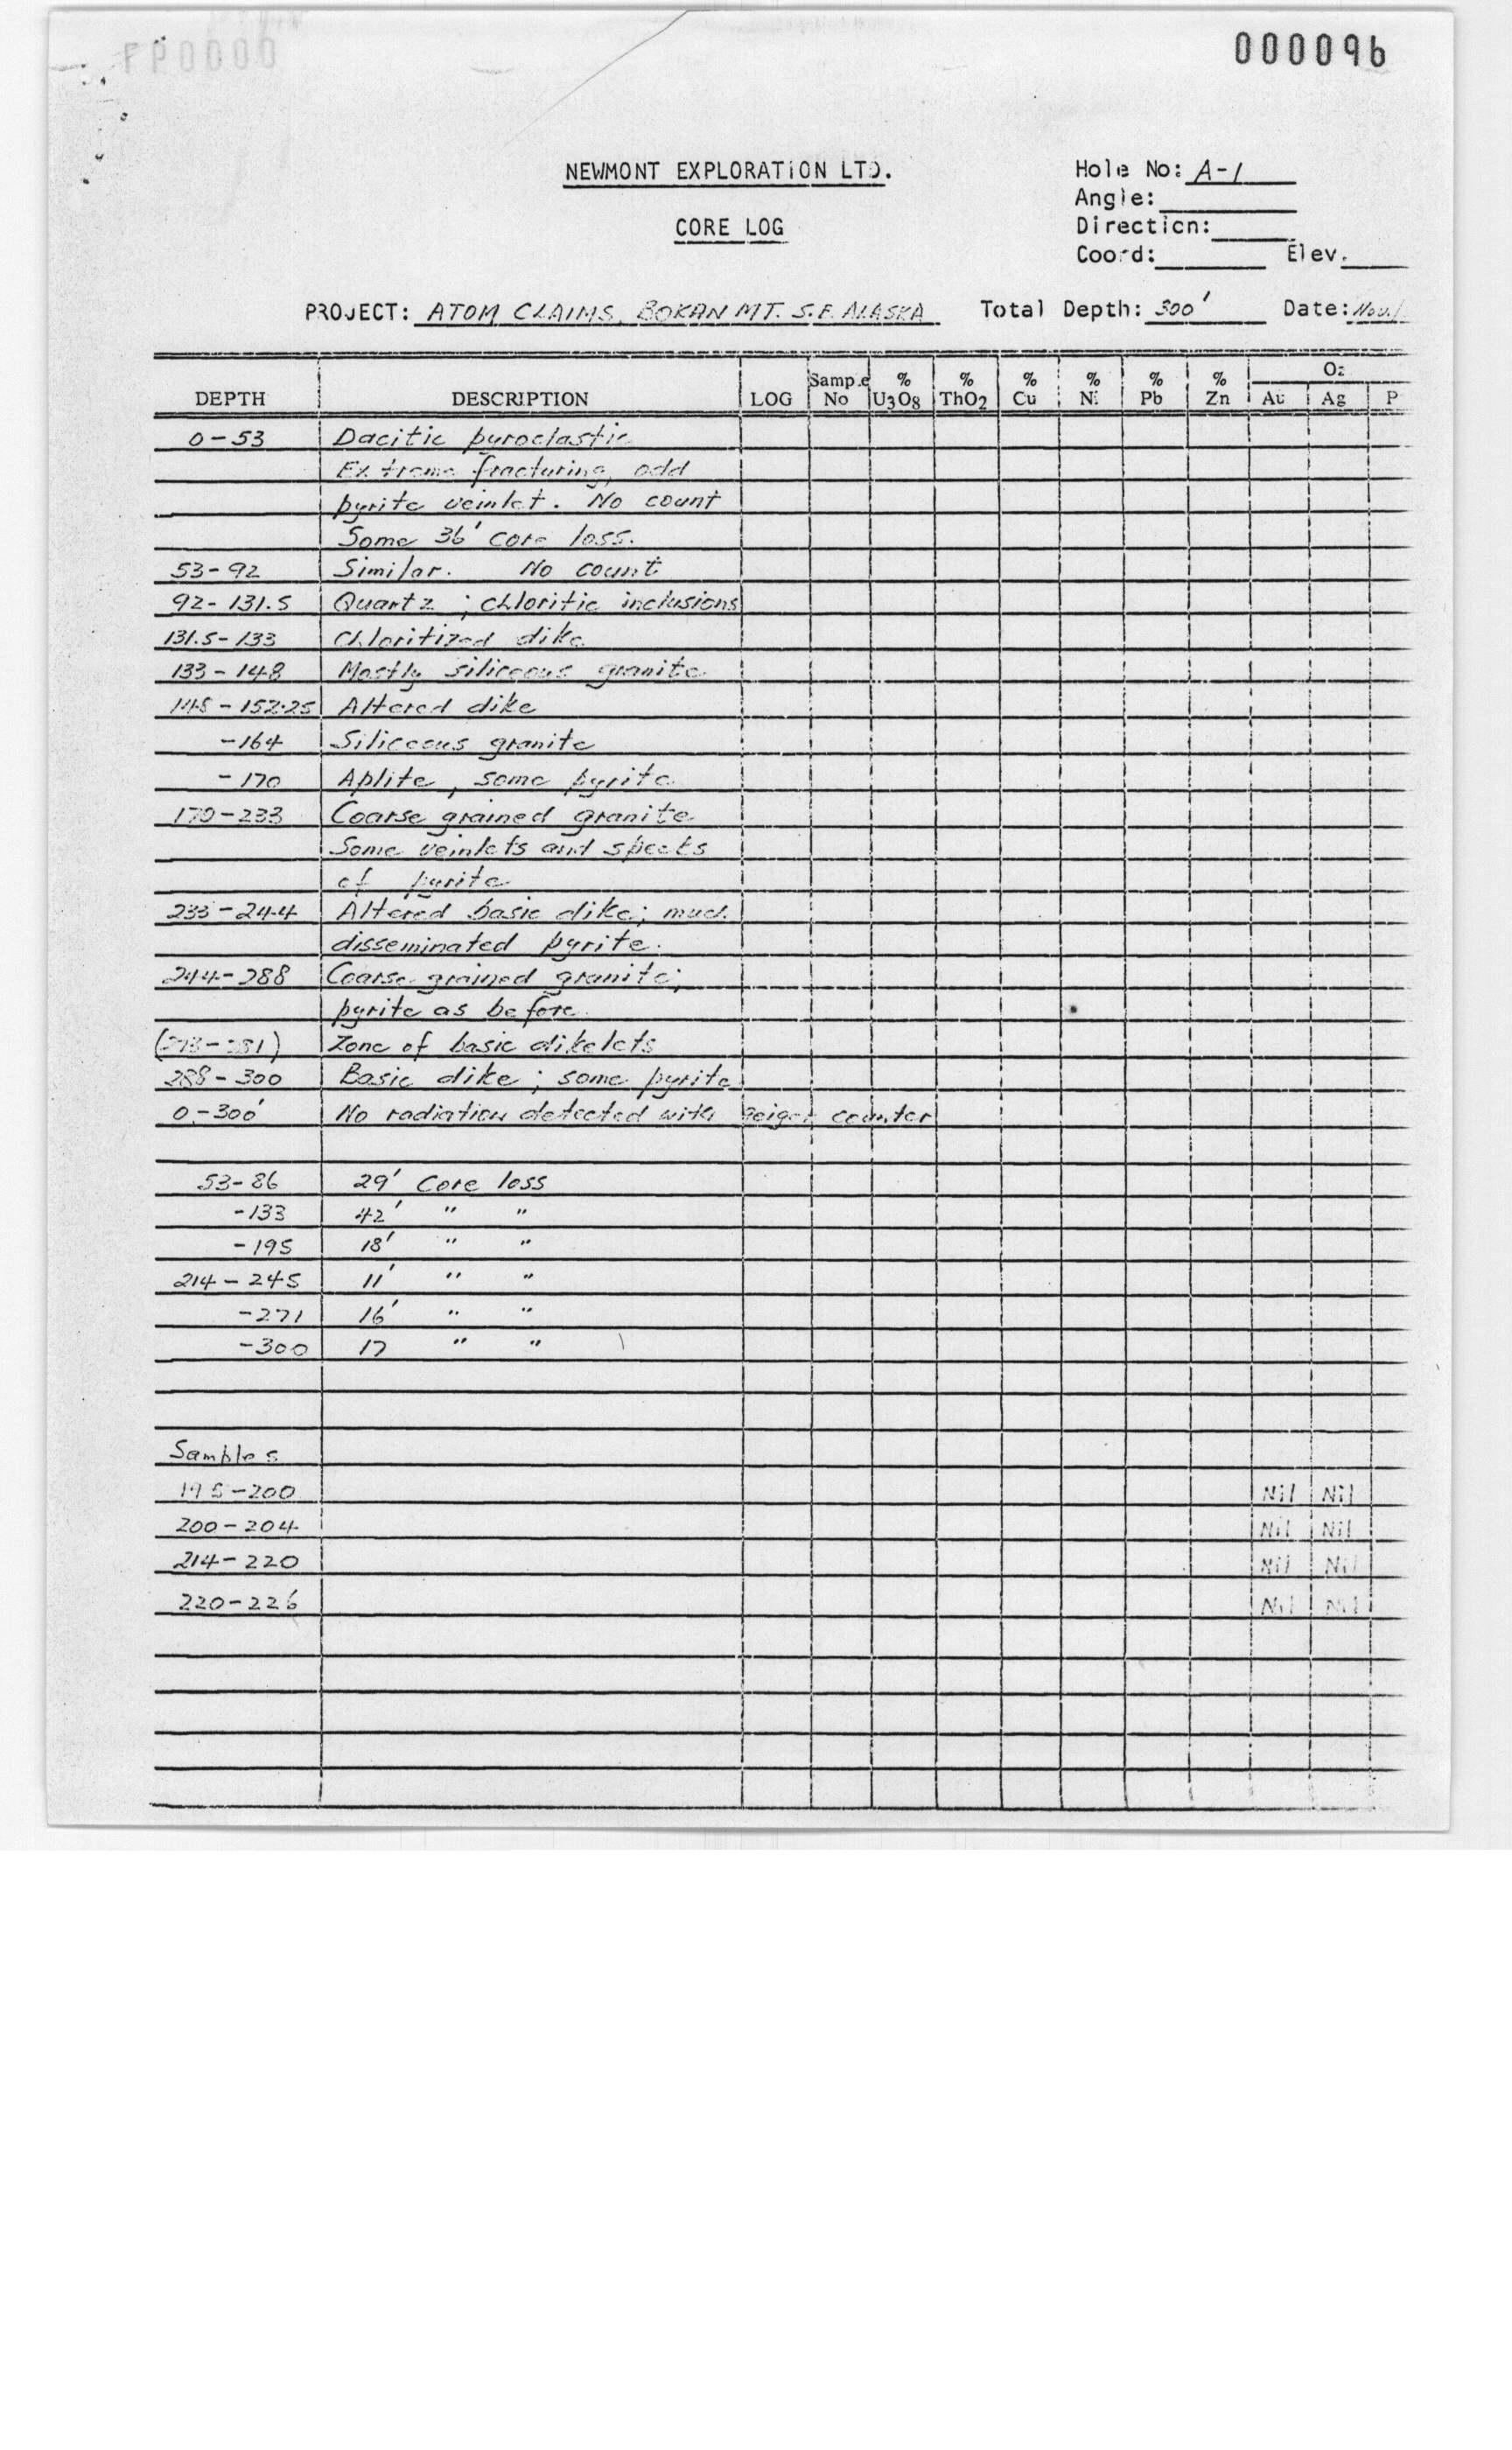 000096
NEWMONT EXPLORATION LTD.
Hole No: A-1
Angle:
CORE LOG
Direction:
Coord: Elev.
PROJECT: ATOM CLAIMS, BOKAN MT. S.E. ALASKA Total Depth: 300' Date: Nov.
DEPTH DESCRIPTION LOG Sample No % U3O8 % ThO2 % Cu % Ni % Pb % Zn Oz Au Ag P
0-53 Dacitic pyroclastic
Extreme fracturing, odd
pyrite veinlet. No count
Some 36' core loss.
53-92 Similar. No count
92-131.5 Quartz; chloritic inclusions
131.5-133 Chloritized dike
133-148 Mostly siliceous granite
148-152.25 Altered dike
-164 Siliceous granite
-170 Aplite, some pyrite
170-233 Coarse grained granite
Some veinlets and specks
of pyrite
233-244 Altered basic dike; much
disseminated pyrite.
244-288 Coarse grained granite;
pyrite as before.
Zone of basic dikelets
288-300 Basic dike; some pyrite
0-300' No radiation detected with geiger counter
53-86 29' Core loss
-133 42' " "
-195 18' " "
214-245 11' " "
-271 16' " "
-300 17 " "
Samples
195-200 Nil Nil
200-204 Nil Nil
214-220 Nil Nil
220-226 Nil Nil